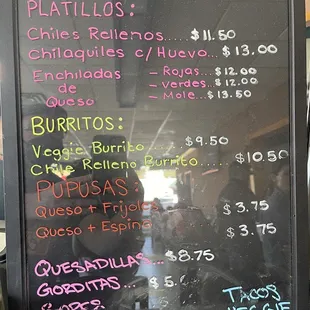 PLATILLOS:
Chiles Rellenos..... $11.50
Chilaquiles c/Huevo... $13.00
Enchiladas - Rojas... $12.00
de - Verdes... $12.00
Queso - Mole... $13.50
BURRITOS:
Veggie Burrito...... $9.50
Chile Relleno Burrito..... $10.50
PUPUSAS:
Queso + Frijoles $3.75
Queso + Espina $3.75
QUESADILLAS $8.75
GORDITAS..... $5.
TACOS
VEGGIE